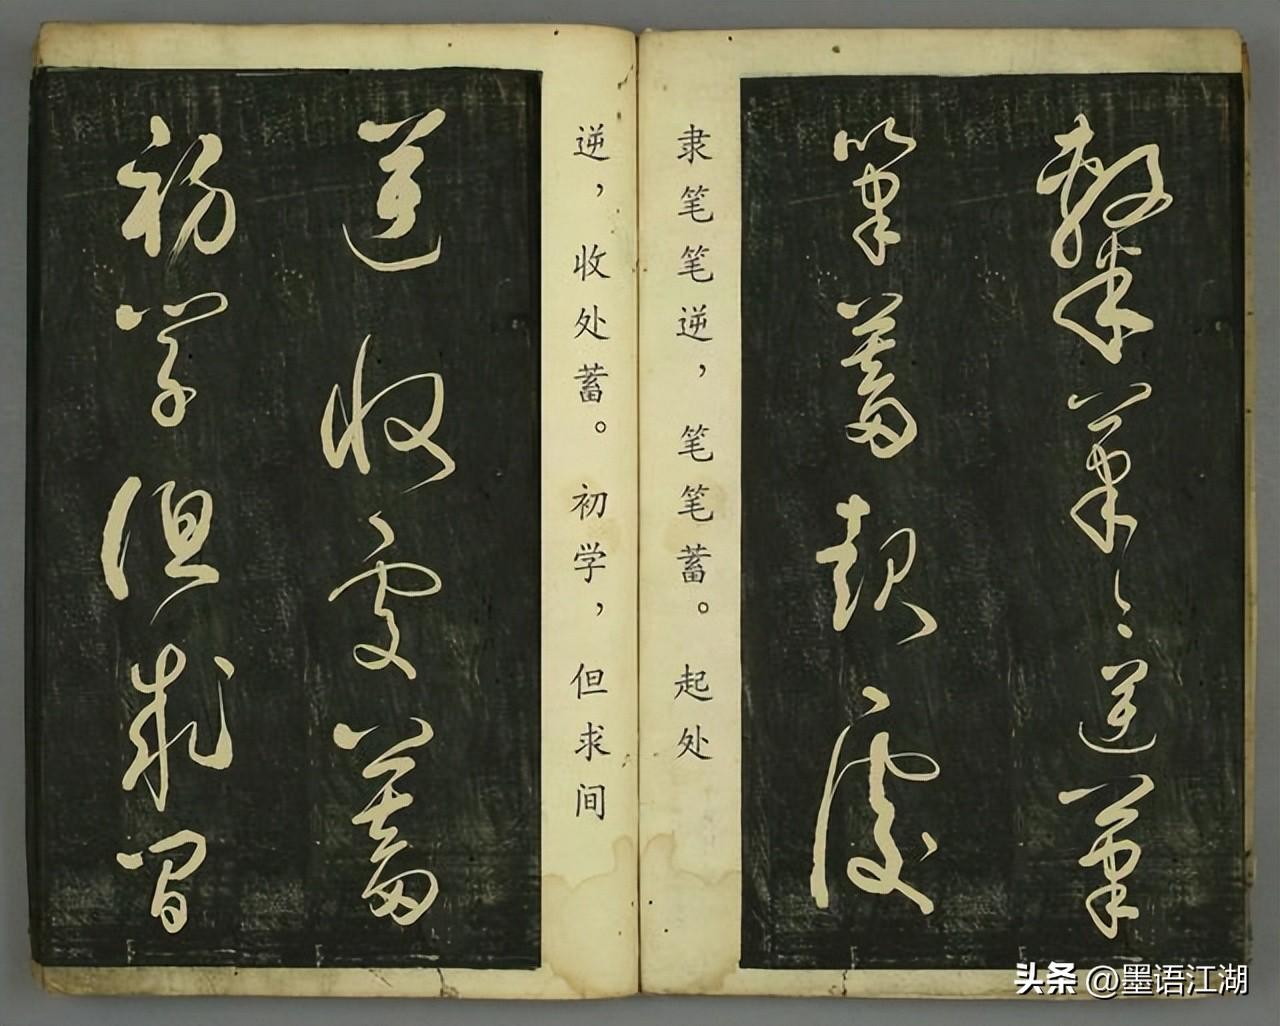 隸筆々逆筆
筆蓄起處
隶笔笔逆，笔笔蓄。起处
逆，收处蓄。初学，但求间
逆收處蓄
初學但求間
头条 @墨语江湖